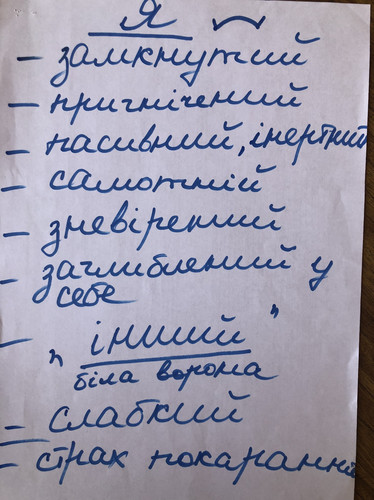 Я
– замкнутий
– пригнічений
– пасивний, інертний
– самотній
– зневірений
– заглиблений у
себе
– „інший"
біла ворона
– слабкий
– страх покарання